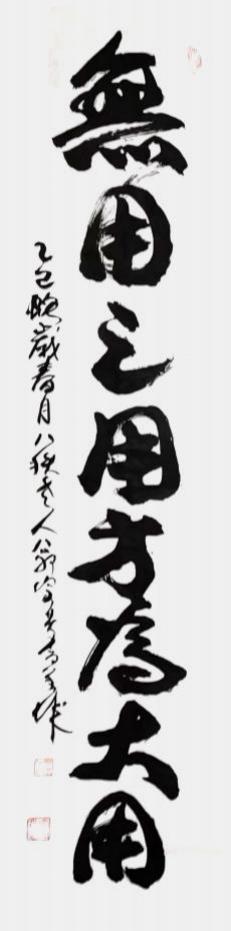 無用之用方為大用
乙巳 歲春月八秩老人翁